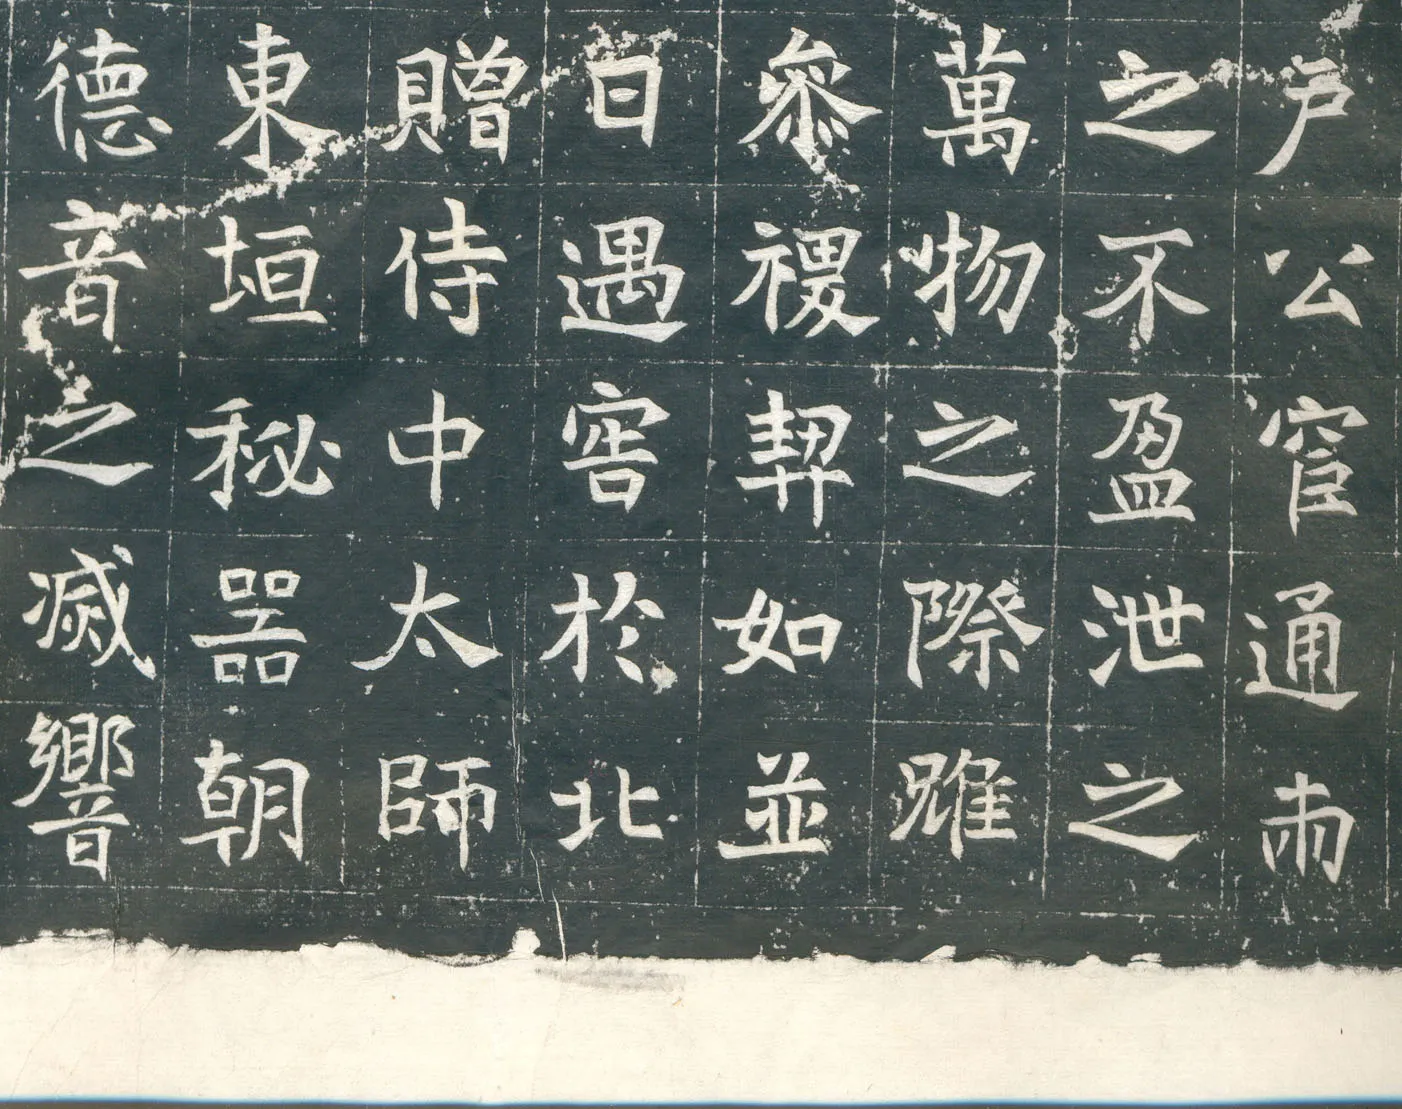 户公宦通
之不盈泄之
萬物之際雖
參稷契如並
日遇害於北
贈侍中太師
東垣秘器朝
德音之滅響